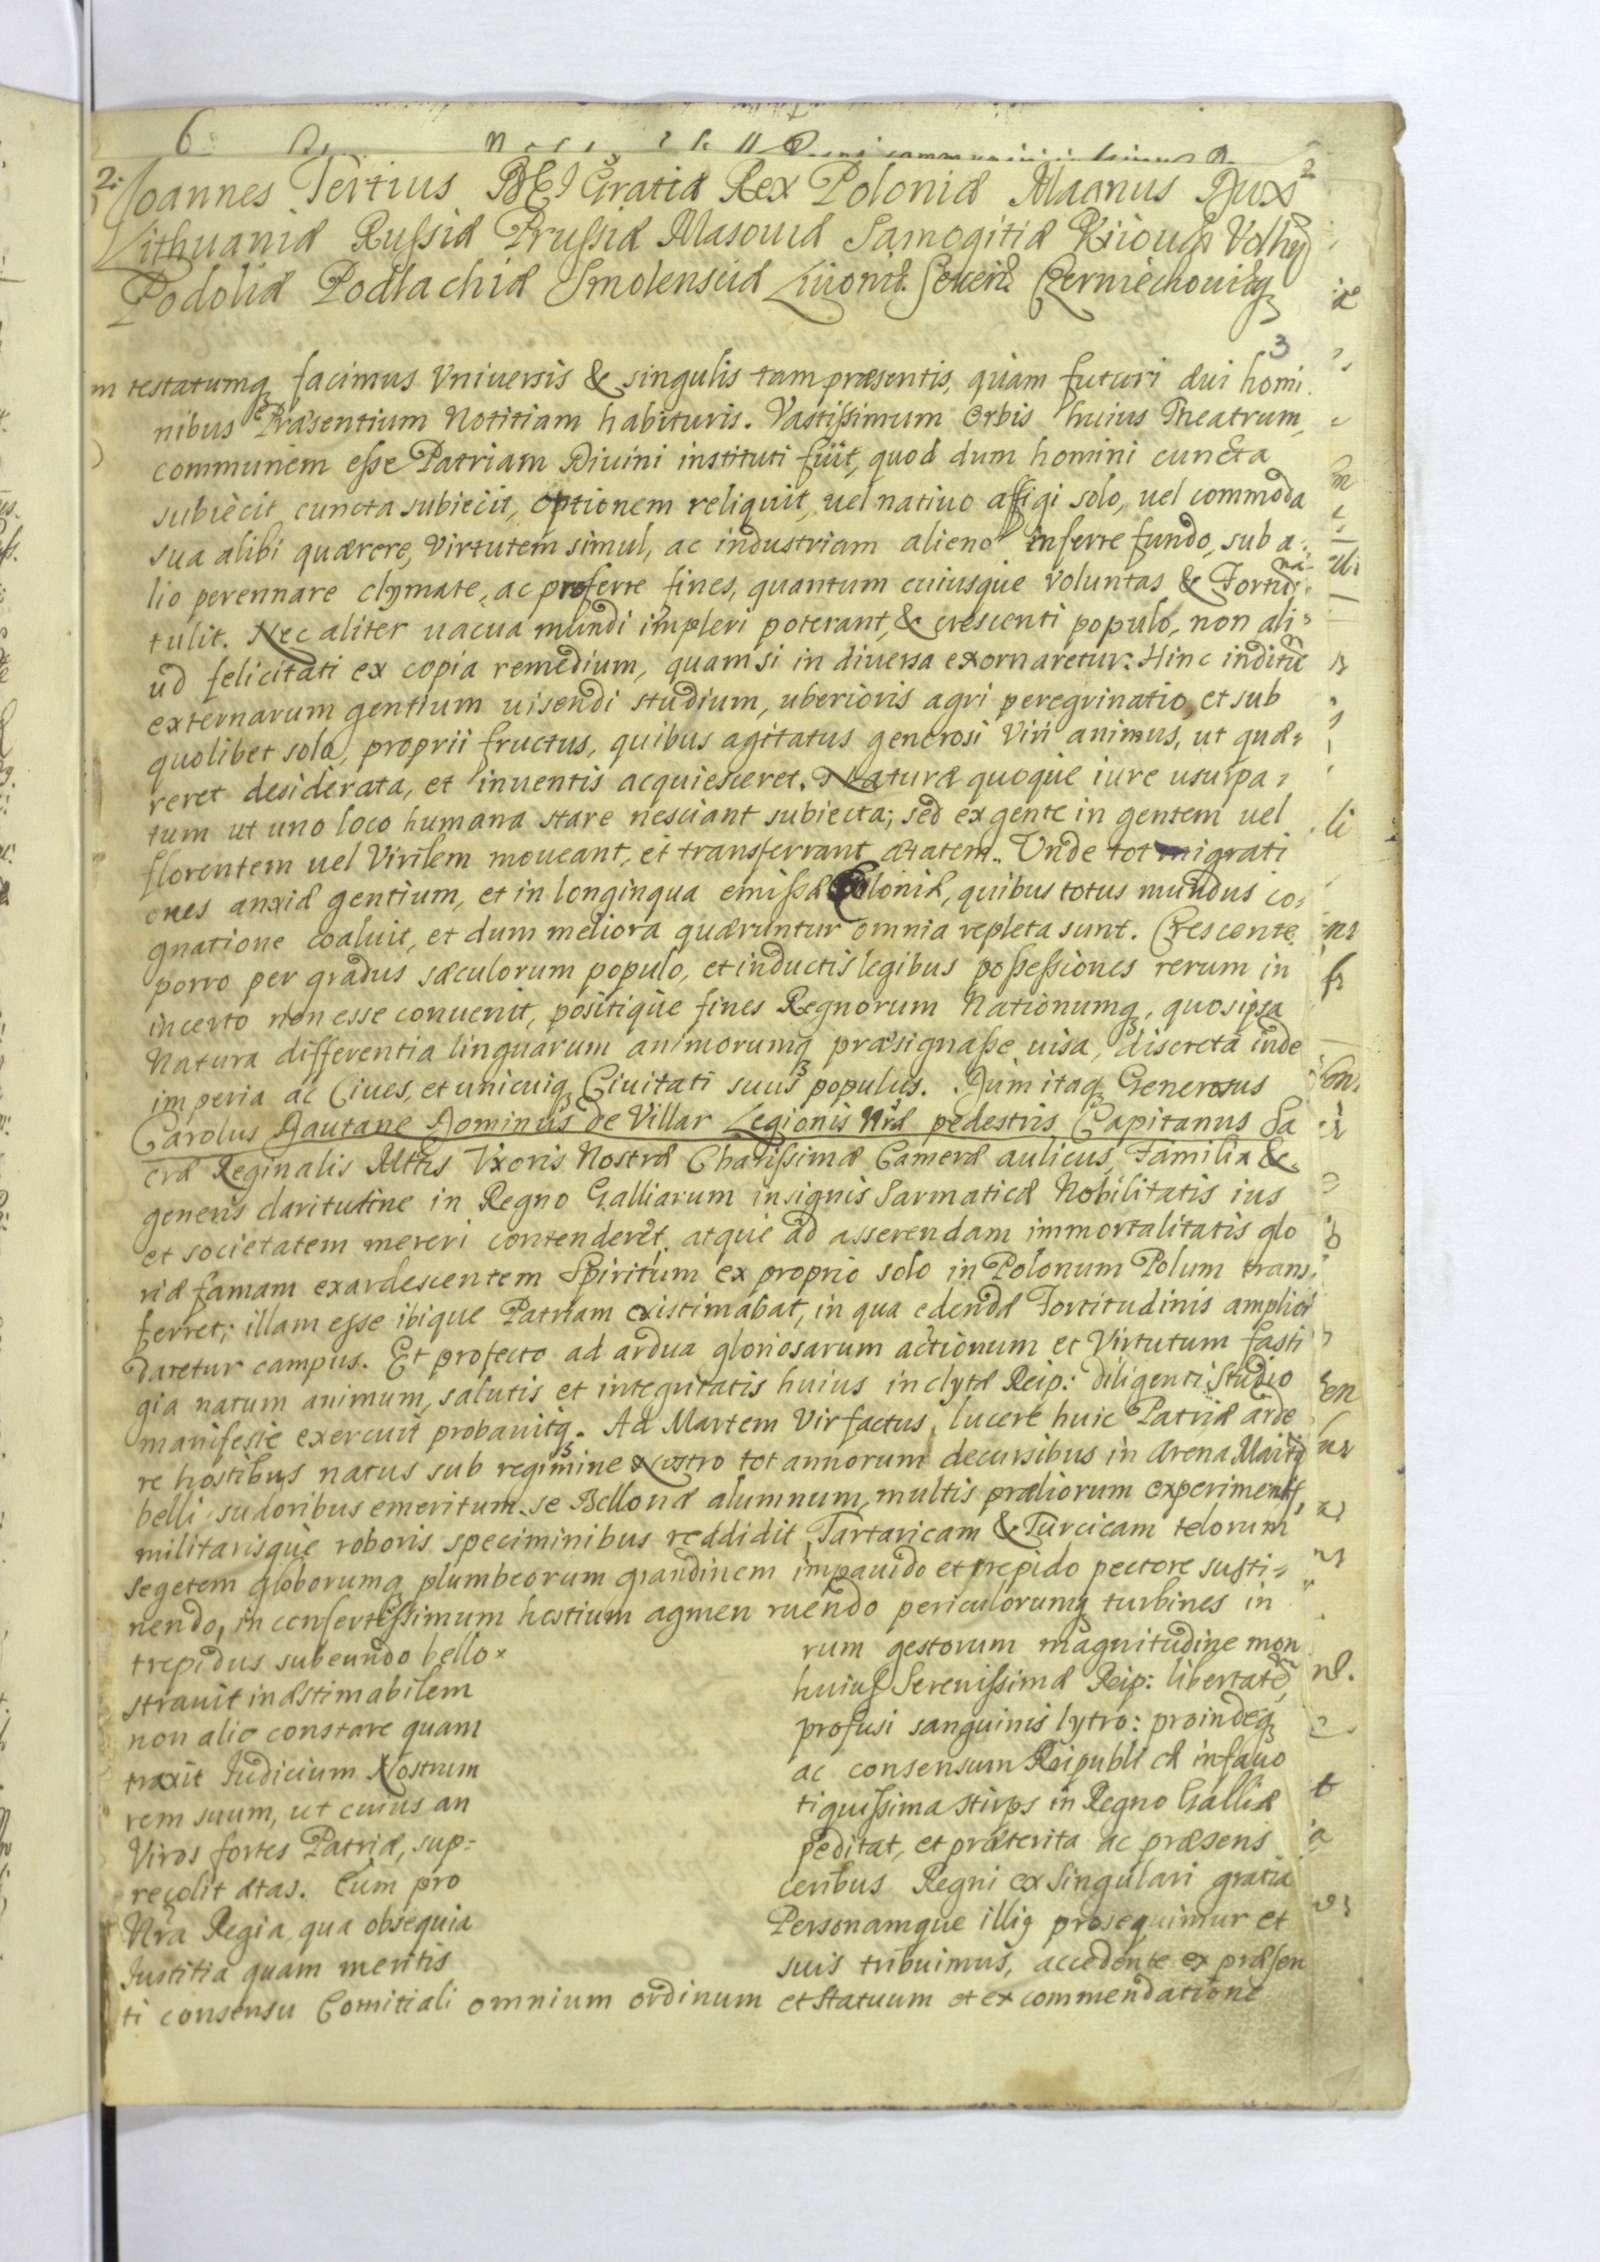 6
2. Joannes Tertius DEI Gratiæ Rex Poloniæ Magnus Dux 2
Lithuaniæ Russiæ Prussiæ Masoviæ Samogitiæ Kiioviæ Volhy
Podoliæ Podlachiæ Smolensciæ Livoniæ Severiæ Czerniechoviæq
3
m testatumq facimus Vniversis & singulis tam præsentis, quàm futuri ævi homi
nibus Præsentium Notitiam habituris. Vastissimum Orbis huius Theatrum,
communem esse Patriam Divini instituti fuit, quod dum homini cuncta
subiècit cuncta subiecit, optionem reliquit, vel nativo affigi solo, vel commoda
sua alibi quærere, virtutem simul, ac industriam alieno inferre fundo, sub a-
lio perennare clymate, ac proferre fines, quantum cuiusque voluntas & Fortuna
tulit. Nec aliter vacua mundi impleri poterant, & crescenti populo, non ali=
ud felicitati ex copia remedium, quam si in diversa exornaretur: Hinc inditum
externarum gentium visendi studium, uberioris agri peregrinatio, et sub
quolibet solo, proprii fructus, quibus agitatus generosi Viri animus, ut quæ=
reret desiderata, et inventis acquiesceret. Naturæ quoque iure usurpa=
tum ut uno loco humana stare nesciant subiecta; sed ex gente in gentem vel
florentem vel Virilem moveant, et transferrant ætatem. Unde tot migrati
ones anxiæ gentium, et in longinqua emissæ Coloniæ, quibus totus mundus co=
gnatione coaluit, et dum meliora quæruntur omnia repleta sunt. Crescente
porro per gradus sæculorum populo, et inductis legibus possessiones rerum in
incerto non esse convenit, positique fines Regnorum Nationumq, quos ipsa
Natura differentia linguarum animorumq præsignasse visa, discreta inde
imperia ac Cives, et unicuiq Civitati suus populus. Dum itaq Generosus
Carolus Dautane Dominus de Villar Legionis Nræ pedestris Capitanus Sa
cræ Reginalis Mttis Vxoris Nostræ Charissimæ Cameræ aulicus, Familiæ &
generis claritudine in Regno Galliarum insignis Sarmaticæ Nobilitatis ius
et societatem mereri contenderet, atque ad asserendam immortalitatis glo
riæ famam exardescentem Spiritum ex proprio solo in Polonum Polum trans
ferret; illam esse ibique Patriam existimabat, in qua edendæ Fortitudinis amplior
daretur campus. Et profecto ad ardua gloriosarum actionum et Virtutum fasti
gia natum animum, salutis et integritatis huius inclytæ Reip: diligenti Studio
manifeste exercuit probavitq. Ad Martem Vir factus, lucere huic Patriæ arde
re hostibus natus sub regimine Nostro tot annorum decursibus in Arena Martis
belli sudoribus emeritum se Bellonæ alumnum, multis præliorum experimentis
militarisque roboris speciminibus reddidit, Tartaricam & Turcicam telorum
segetem globorumq plumbeorum grandinem impavido et trepido pectore susti=
nendo, in confertissimum hostium agmen ruendo periculorumq turbines in
trepidus subeundo bello× rum gestorum magnitudine mon
stravit inæstimabilem huius Serenissimæ Reip: libertatem
non alio constare quam profusi sanguinis lytro: proindeq
traxit Judicium Nostrum ac consensum Reipublicæ in favo
rem suum, ut cuius an tiquissima stirps in Regno Galliæ
Viros fortes Patriæ, sup= peditat, et præterita ac præsens
recolit ætas. Cum pro ceribus Regni ex Singulari gratia
Nra Regia, qua obsequia Personamque illiq prosequimur et
Iustitia quam meritis suis tribuimus, accedente ex præsen
ti consensu Comitiali omnium ordinum et Statuum et ex commendatione